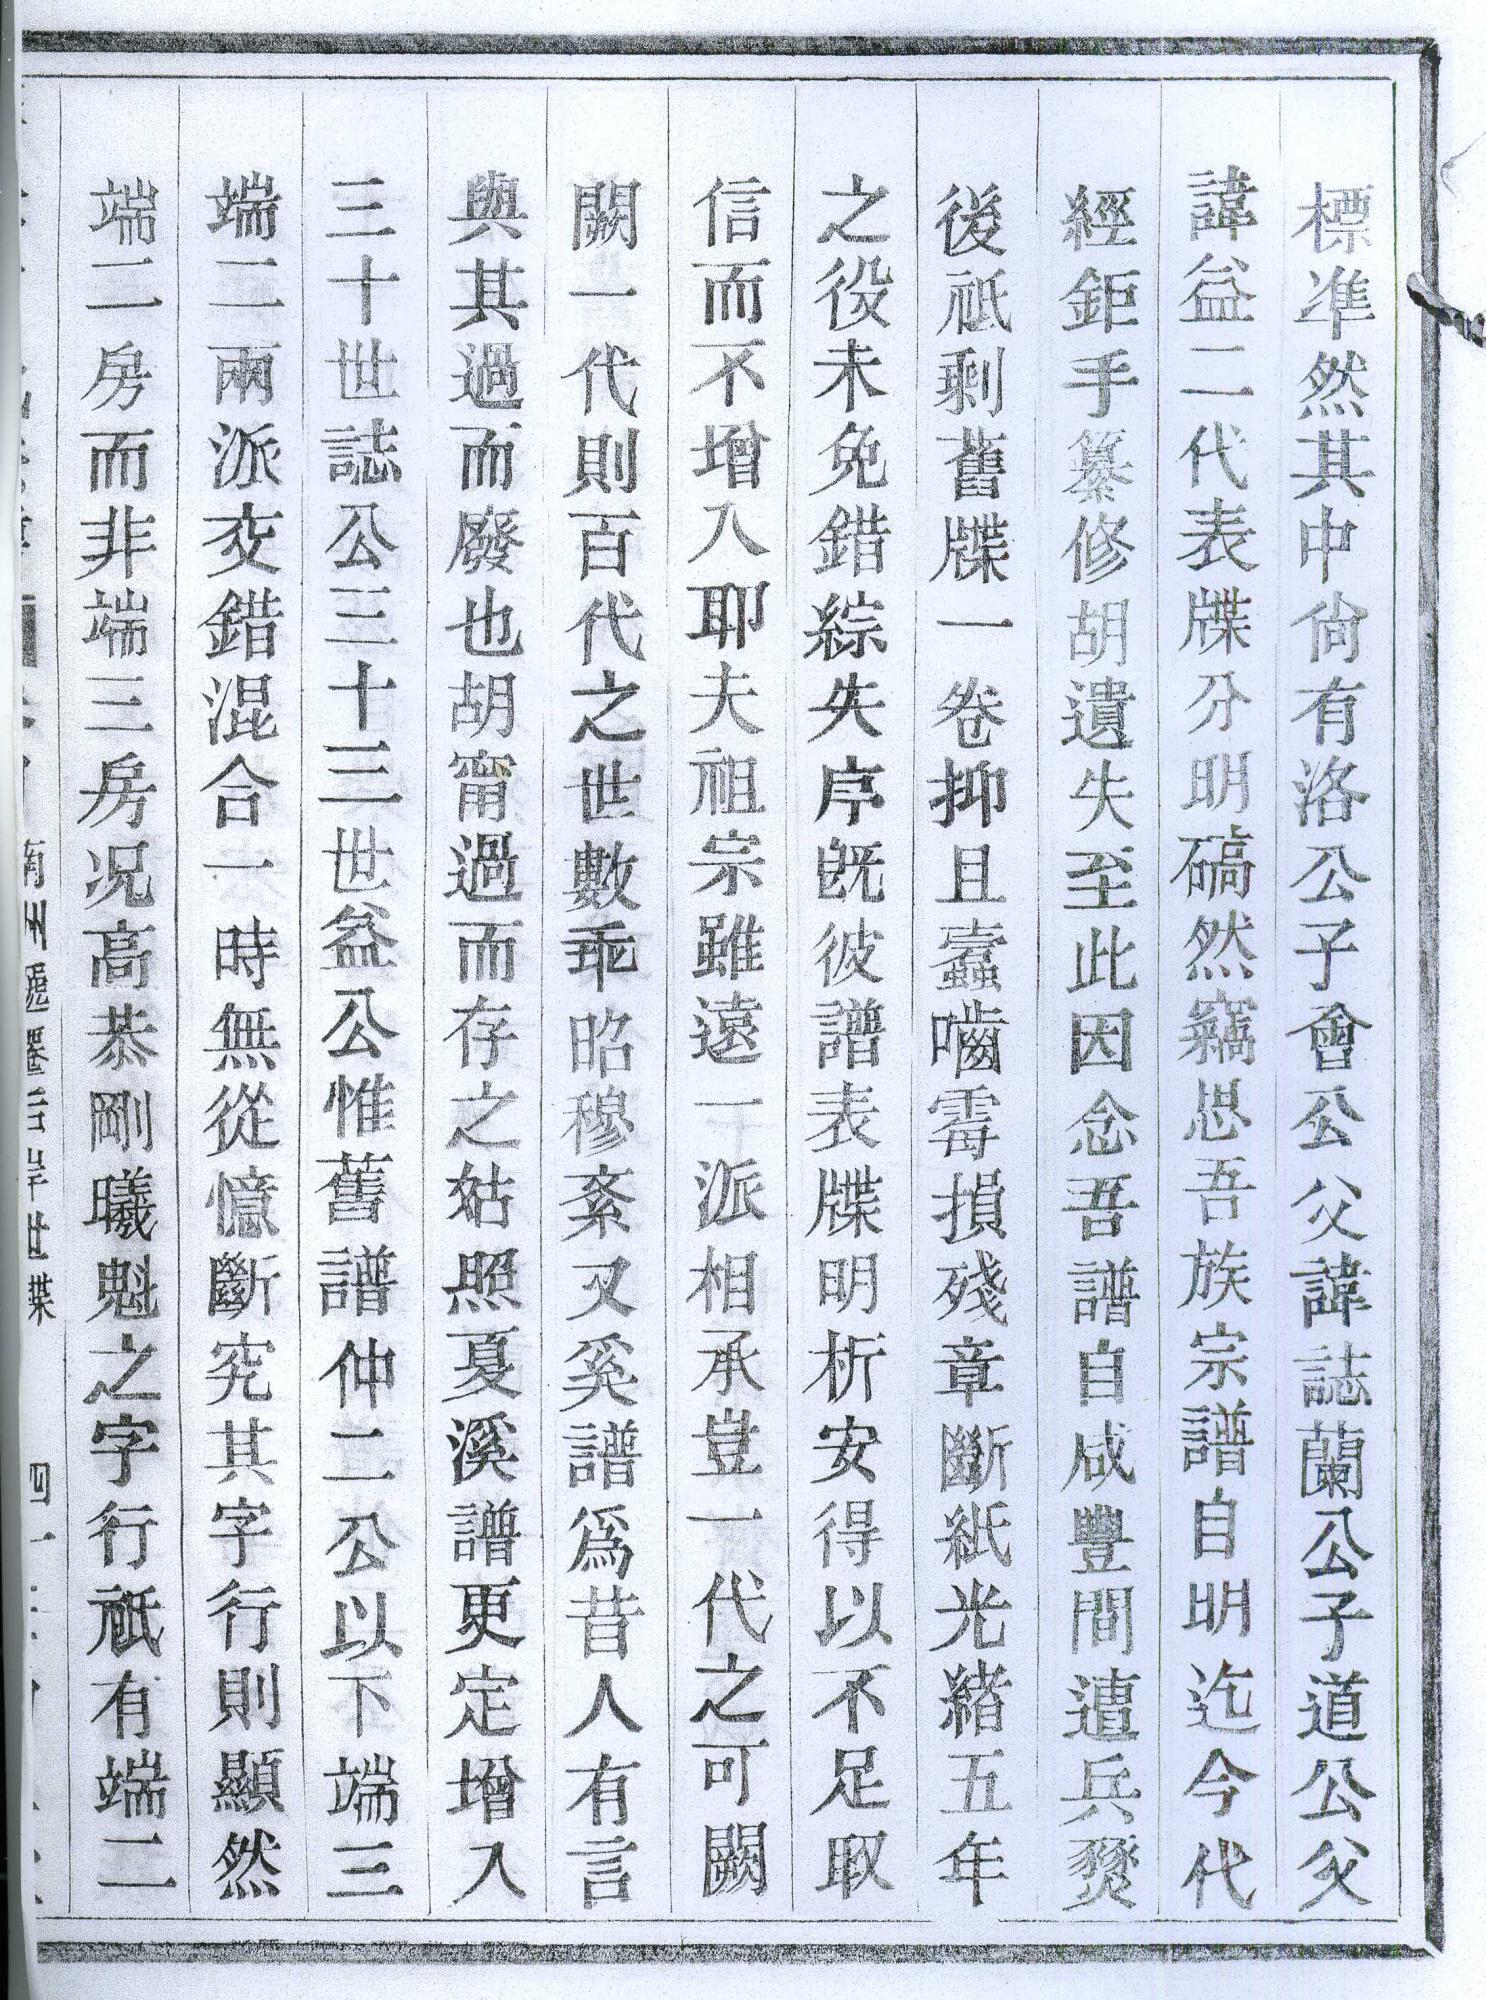 標準然其中尙有洛公子會公父諱誌蘭公子道公父
諱益二代表牒分明確然竊思吾族宗譜自明迄今代
經鉅手纂修胡遺失至此因念吾譜自咸豐間遭兵燹
後祇剩舊牒一卷抑且蠹嚙霉損殘章斷紙光緒五年
之役未免錯綜失序旣彼譜表牒明析安得以不足取
信而不增入耶夫祖宗雖遠一派相承豈一代之可闕
闕一代則百代之世數乖昭穆紊又奚譜爲昔人有言
與其過而廢也胡甯過而存之姑照夏溪譜更定增入
三十世誌公三十三世益公惟舊譜仲二公以下端三
端二兩派交錯混合一時無從憶斷究其字行則顯然
端二房而非端三房况高恭剛曦魁之字行祇有端二